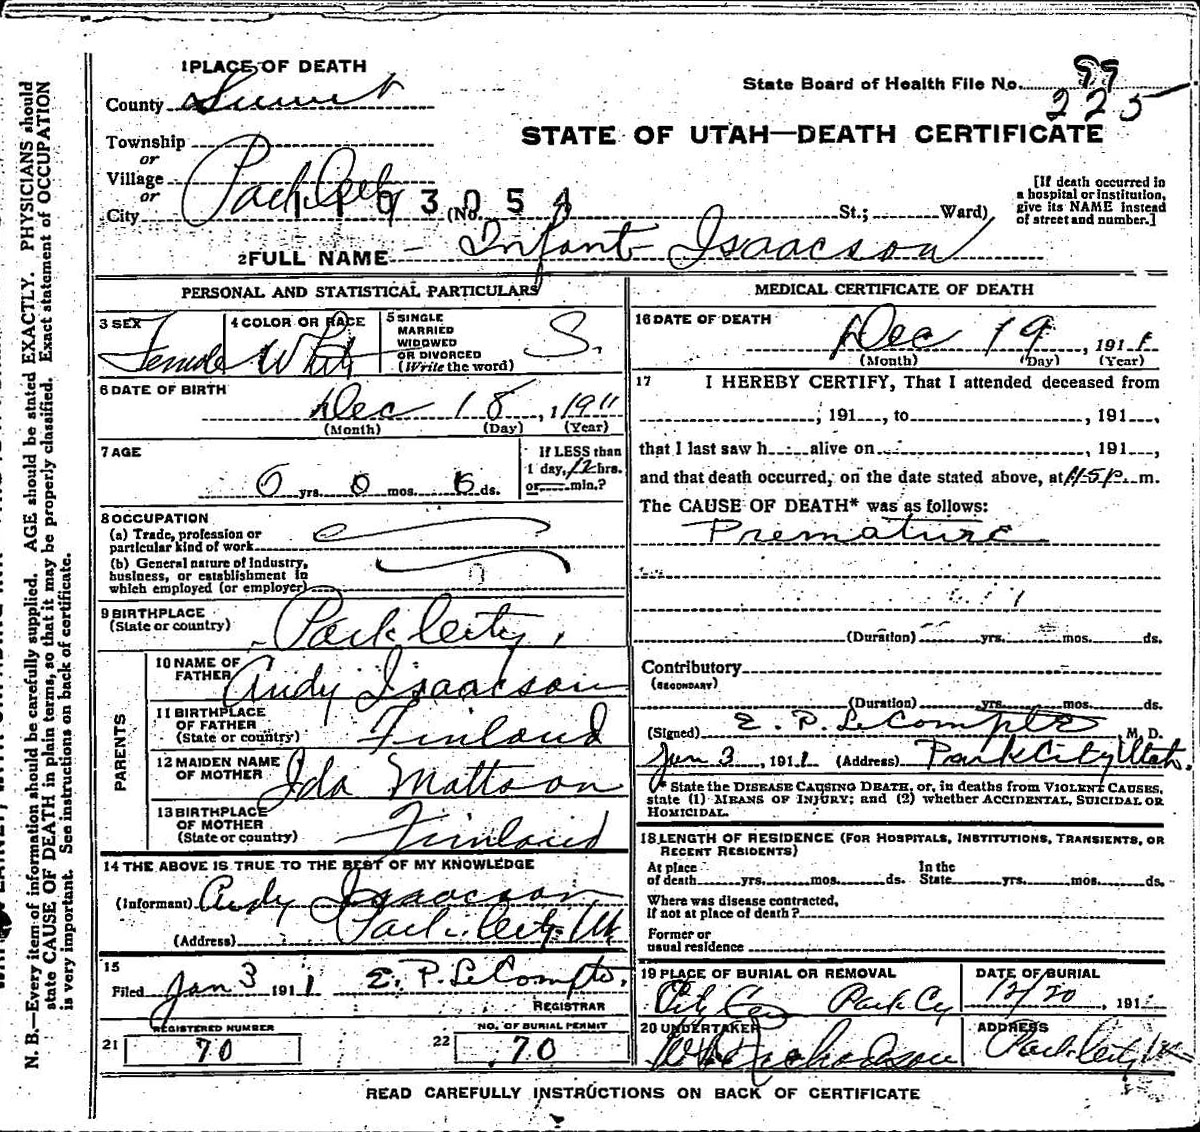 1 PLACE OF DEATH
County Summit
State Board of Health File No. 99
225
STATE OF UTAH—DEATH CERTIFICATE
Township
or
Village
or
City Park City
1103054
(No. St.; Ward)
[If death occurred in
a hospital or institution,
give its NAME instead
of street and number.]
2 FULL NAME Infant Isaacson
PERSONAL AND STATISTICAL PARTICULARS
3 SEX Female
4 COLOR OR RACE White
5 SINGLE
MARRIED
WIDOWED
OR DIVORCED
(Write the word) S.
6 DATE OF BIRTH
Dec 18, 1911
(Month) (Day) (Year)
7 AGE
0 yrs. 0 mos. 0 ds.
If LESS than
1 day, 12 hrs.
or min.?
8 OCCUPATION
(a) Trade, profession or
particular kind of work
(b) General nature of Industry,
business, or establishment in
which employed (or employer)
9 BIRTHPLACE
(State or country) Park City,
PARENTS
10 NAME OF
FATHER Andy Isaacson
11 BIRTHPLACE
OF FATHER
(State or country) Finland
12 MAIDEN NAME
OF MOTHER Ida Mattson
13 BIRTHPLACE
OF MOTHER
(State or country) Finland
14 THE ABOVE IS TRUE TO THE BEST OF MY KNOWLEDGE
(Informant) Andy Isaacson
(Address) Park City Ut
15
Filed Jan 3 1911 E. P. LeCompte,
REGISTRAR
REGISTERED NUMBER
21 70
NO. OF BURIAL PERMIT
22 70
MEDICAL CERTIFICATE OF DEATH
16 DATE OF DEATH
Dec 19, 1911
(Month) (Day) (Year)
17 I HEREBY CERTIFY, That I attended deceased from
, 191 , to , 191 ,
that I last saw h alive on , 191 ,
and that death occurred, on the date stated above, at m.
The CAUSE OF DEATH* was as follows:
Premature
(Duration) yrs. mos. ds.
Contributory
(SECONDARY)
(Duration) yrs. mos. ds.
(Signed) E. P. LeCompte, M. D.
Jan 3, 1911 (Address) Park City Utah.
* State the DISEASE CAUSING DEATH, or, in deaths from VIOLENT CAUSES,
state (1) MEANS OF INJURY; and (2) whether ACCIDENTAL, SUICIDAL OR
HOMICIDAL.
18 LENGTH OF RESIDENCE (FOR HOSPITALS, INSTITUTIONS, TRANSIENTS, OR
RECENT RESIDENTS)
At place
of death yrs. mos. ds.
In the
State yrs. mos. ds.
Where was disease contracted,
if not at place of death?
Former or
usual residence
19 PLACE OF BURIAL OR REMOVAL
City Cem Park Cy
DATE OF BURIAL
12/20, 191
20 UNDERTAKER
ADDRESS
Park City Ut
READ CAREFULLY INSTRUCTIONS ON BACK OF CERTIFICATE
N. B.—Every item of information should be carefully supplied. AGE should be stated EXACTLY. PHYSICIANS should
state CAUSE OF DEATH in plain terms, so that it may be properly classified. Exact statement of OCCUPATION
is very important. See instructions on back of certificate.